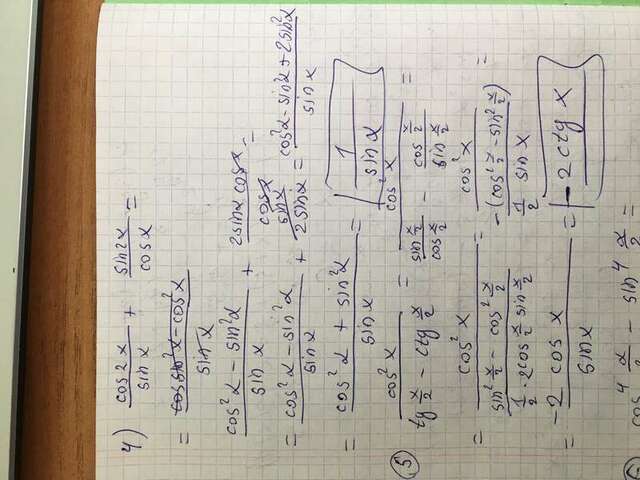 4) cos2x/sin x + sin2x/cosx =
= cos sin²x - cos²x/sin x
cos²α - sin²α/sin x + 2sinα cosx/cosx =
= cos²α - sin²α/sinα + sinx/2sinα = cos²α - sin²α + 2sin²α/sin x
= cos²α + sin²α/sin x = 1/sin α
5) cos²x/tg x/2 - ctg x/2 = cos²x/(sin x/2/cos x/2 - cos x/2/sin x/2) =
= cos²x/((sin² x/2 - cos² x/2)/(1/2 · 2cos x/2 sin x/2)) = cos²x/(-(cos² x/2 - sin² x/2)/(1/2 sin x)) =
= -2 cos x/sinx = -2 ctg x
6) cos⁴ α/2 - sin⁴ α/2 =